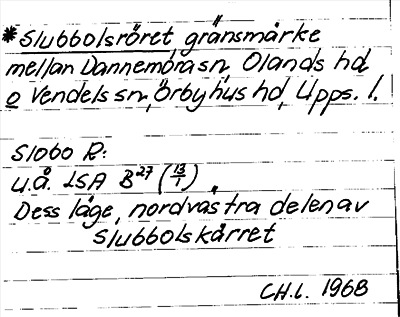 *Slubbolsröret gränsmärke
mellan Dannemora sn, Olands hd
o Vendels sn, Örbyhus hd, Upps. l.
Slobo R:
u.å. LSA B27 (13/1)
Dess läge, nordvästra delen av
Slubbolskärret
CH.L. 1968